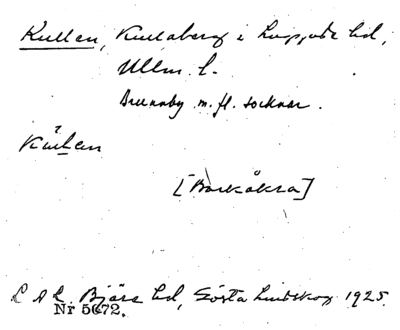 Kullen, Kullaberg i Luggude hd,
Mllm. l.
Brunnby m. fl. socknar.
[Barkåkra]
L A L. Bjäre hd, Gösta Lindskog 1925.
Nr 5672.